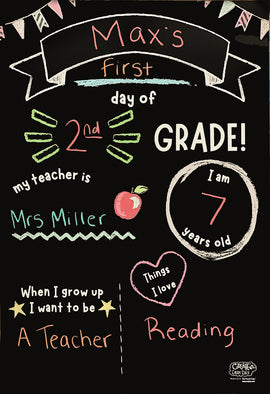 Max's
First
day of
2nd GRADE!
my teacher is
Mrs Miller
I am
7
years old
Things
I love
Reading
When I grow up
I want to be
A Teacher